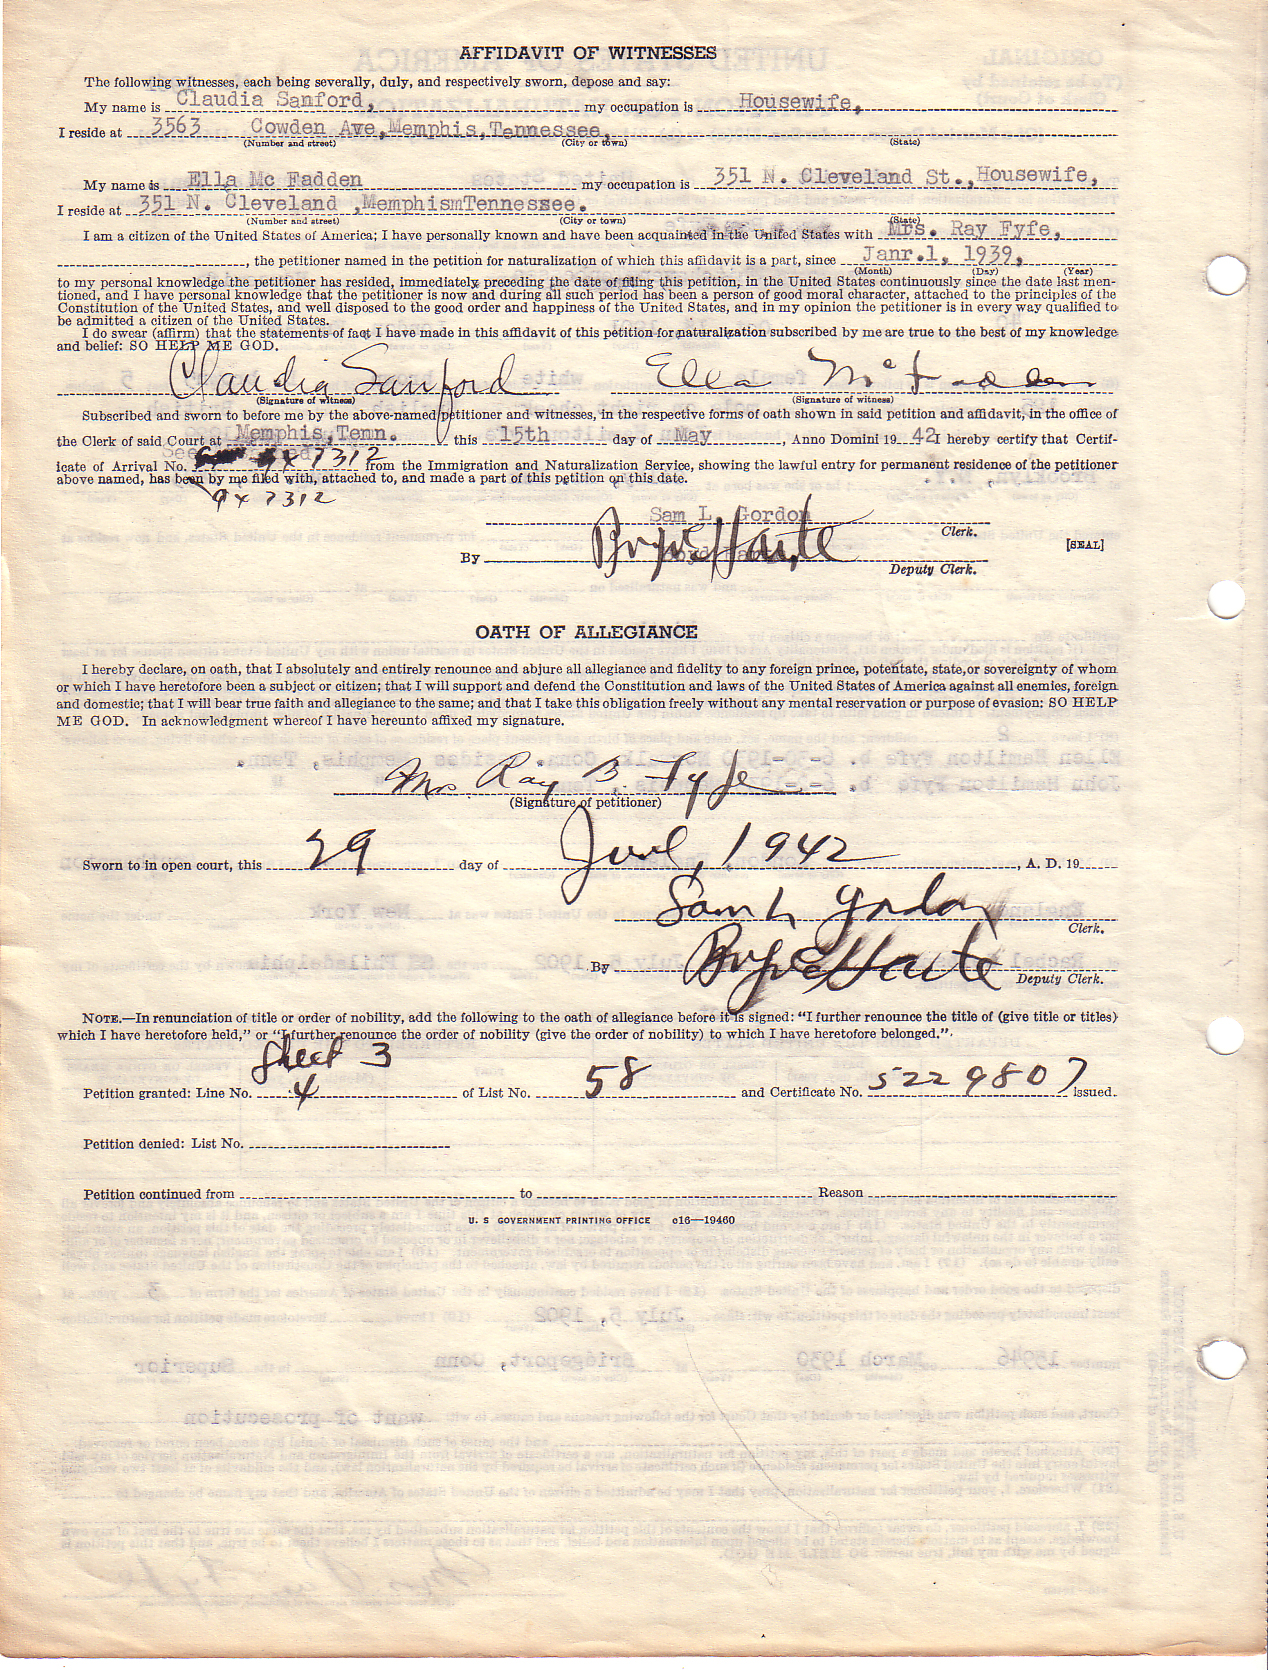 AFFIDAVIT OF WITNESSES
The following witnesses, each being severally, duly, and respectively sworn, depose and say:
My name is Claudia Sanford, my occupation is Housewife,
I reside at 3563 Cowden Ave, Memphis, Tennessee,
(Number and street) (City or town) (State)
My name is Ella Mc Fadden my occupation is 351 N. Cleveland St., Housewife,
I reside at 351 N. Cleveland ,MemphismTennessee.
(Number and street) (City or town) (State)
I am a citizen of the United States of America; I have personally known and have been acquainted in the United States with Mrs. Ray Fyfe,
, the petitioner named in the petition for naturalization of which this affidavit is a part, since Janr.1, 1939,
(Month) (Day) (Year)
to my personal knowledge the petitioner has resided, immediately preceding the date of filing this petition, in the United States continuously since the date last men-
tioned, and I have personal knowledge that the petitioner is now and during all such period has been a person of good moral character, attached to the principles of the
Constitution of the United States, and well disposed to the good order and happiness of the United States, and in my opinion the petitioner is in every way qualified to
be admitted a citizen of the United States.
I do swear (affirm) that the statements of fact I have made in this affidavit of this petition for naturalization subscribed by me are true to the best of my knowledge
and belief: SO HELP ME GOD.
Claudia Sanford Ella McFadden
(Signature of witness) (Signature of witness)
Subscribed and sworn to before me by the above-named petitioner and witnesses, in the respective forms of oath shown in said petition and affidavit, in the office of
the Clerk of said Court at Memphis, Tenn. this 15th day of May, Anno Domini 19 42 I hereby certify that Certif-
icate of Arrival No. 9x 7312 from the Immigration and Naturalization Service, showing the lawful entry for permanent residence of the petitioner
above named, has been by me filed with, attached to, and made a part of this petition on this date.
9x 7312
Sam L. Gordon
Clerk.
By
[SEAL]
Deputy Clerk.
OATH OF ALLEGIANCE
I hereby declare, on oath, that I absolutely and entirely renounce and abjure all allegiance and fidelity to any foreign prince, potentate, state, or sovereignty of whom
or which I have heretofore been a subject or citizen; that I will support and defend the Constitution and laws of the United States of America against all enemies, foreign
and domestic; that I will bear true faith and allegiance to the same; and that I take this obligation freely without any mental reservation or purpose of evasion: SO HELP
ME GOD. In acknowledgment whereof I have hereunto affixed my signature.
Mrs Ray B. Fyfe
(Signature of petitioner)
Sworn to in open court, this 29 day of June, 1942, A. D. 19
Sam L Gordon
Clerk.
By
Deputy Clerk.
NOTE.—In renunciation of title or order of nobility, add the following to the oath of allegiance before it is signed: "I further renounce the title of (give title or titles)
which I have heretofore held," or "I further renounce the order of nobility (give the order of nobility) to which I have heretofore belonged."
Sheet 3
Petition granted: Line No. 4 of List No. 58 and Certificate No. 5229807 issued.
Petition denied: List No.
Petition continued from to Reason
U. S GOVERNMENT PRINTING OFFICE o16—19460